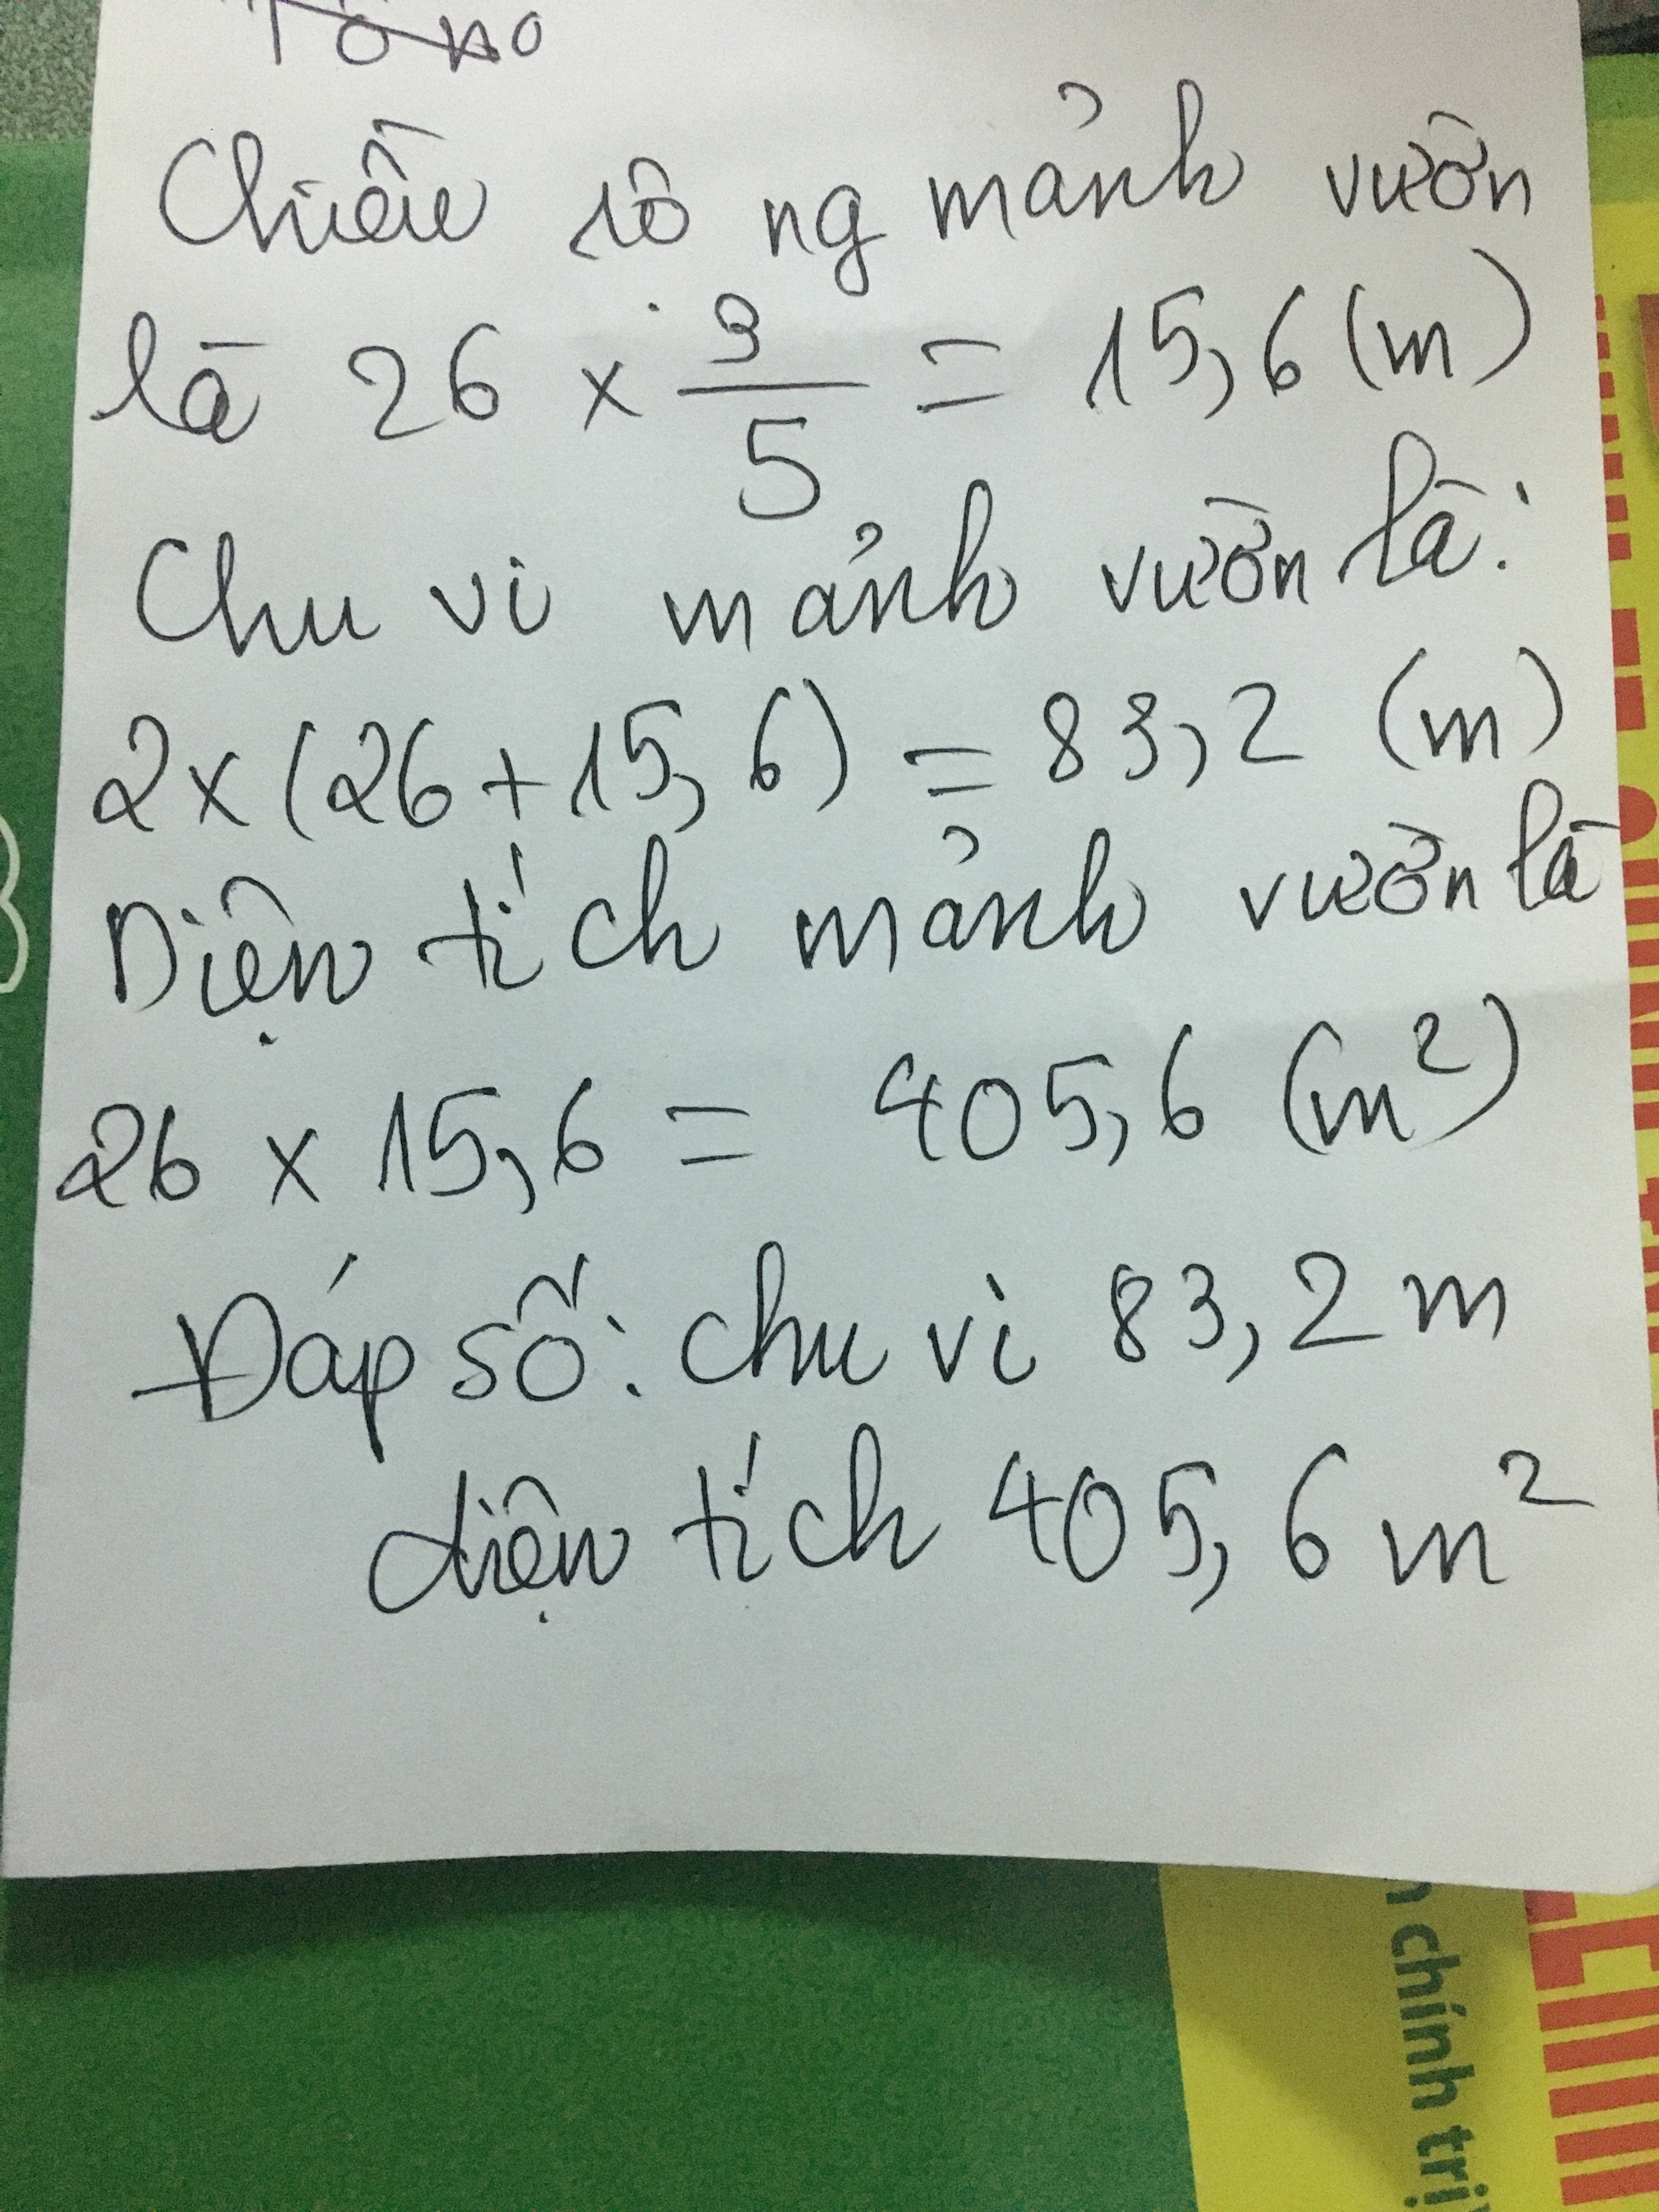 Chiều rộng mảnh vườn
là 26 × 3/5 = 15,6 (m)
Chu vi mảnh vườn là:
2 × (26 + 15,6) = 83,2 (m)
Diện tích mảnh vườn là
26 × 15,6 = 405,6 (m²)
Đáp số: chu vi 83,2 m
diện tích 405,6 m²
chính trị